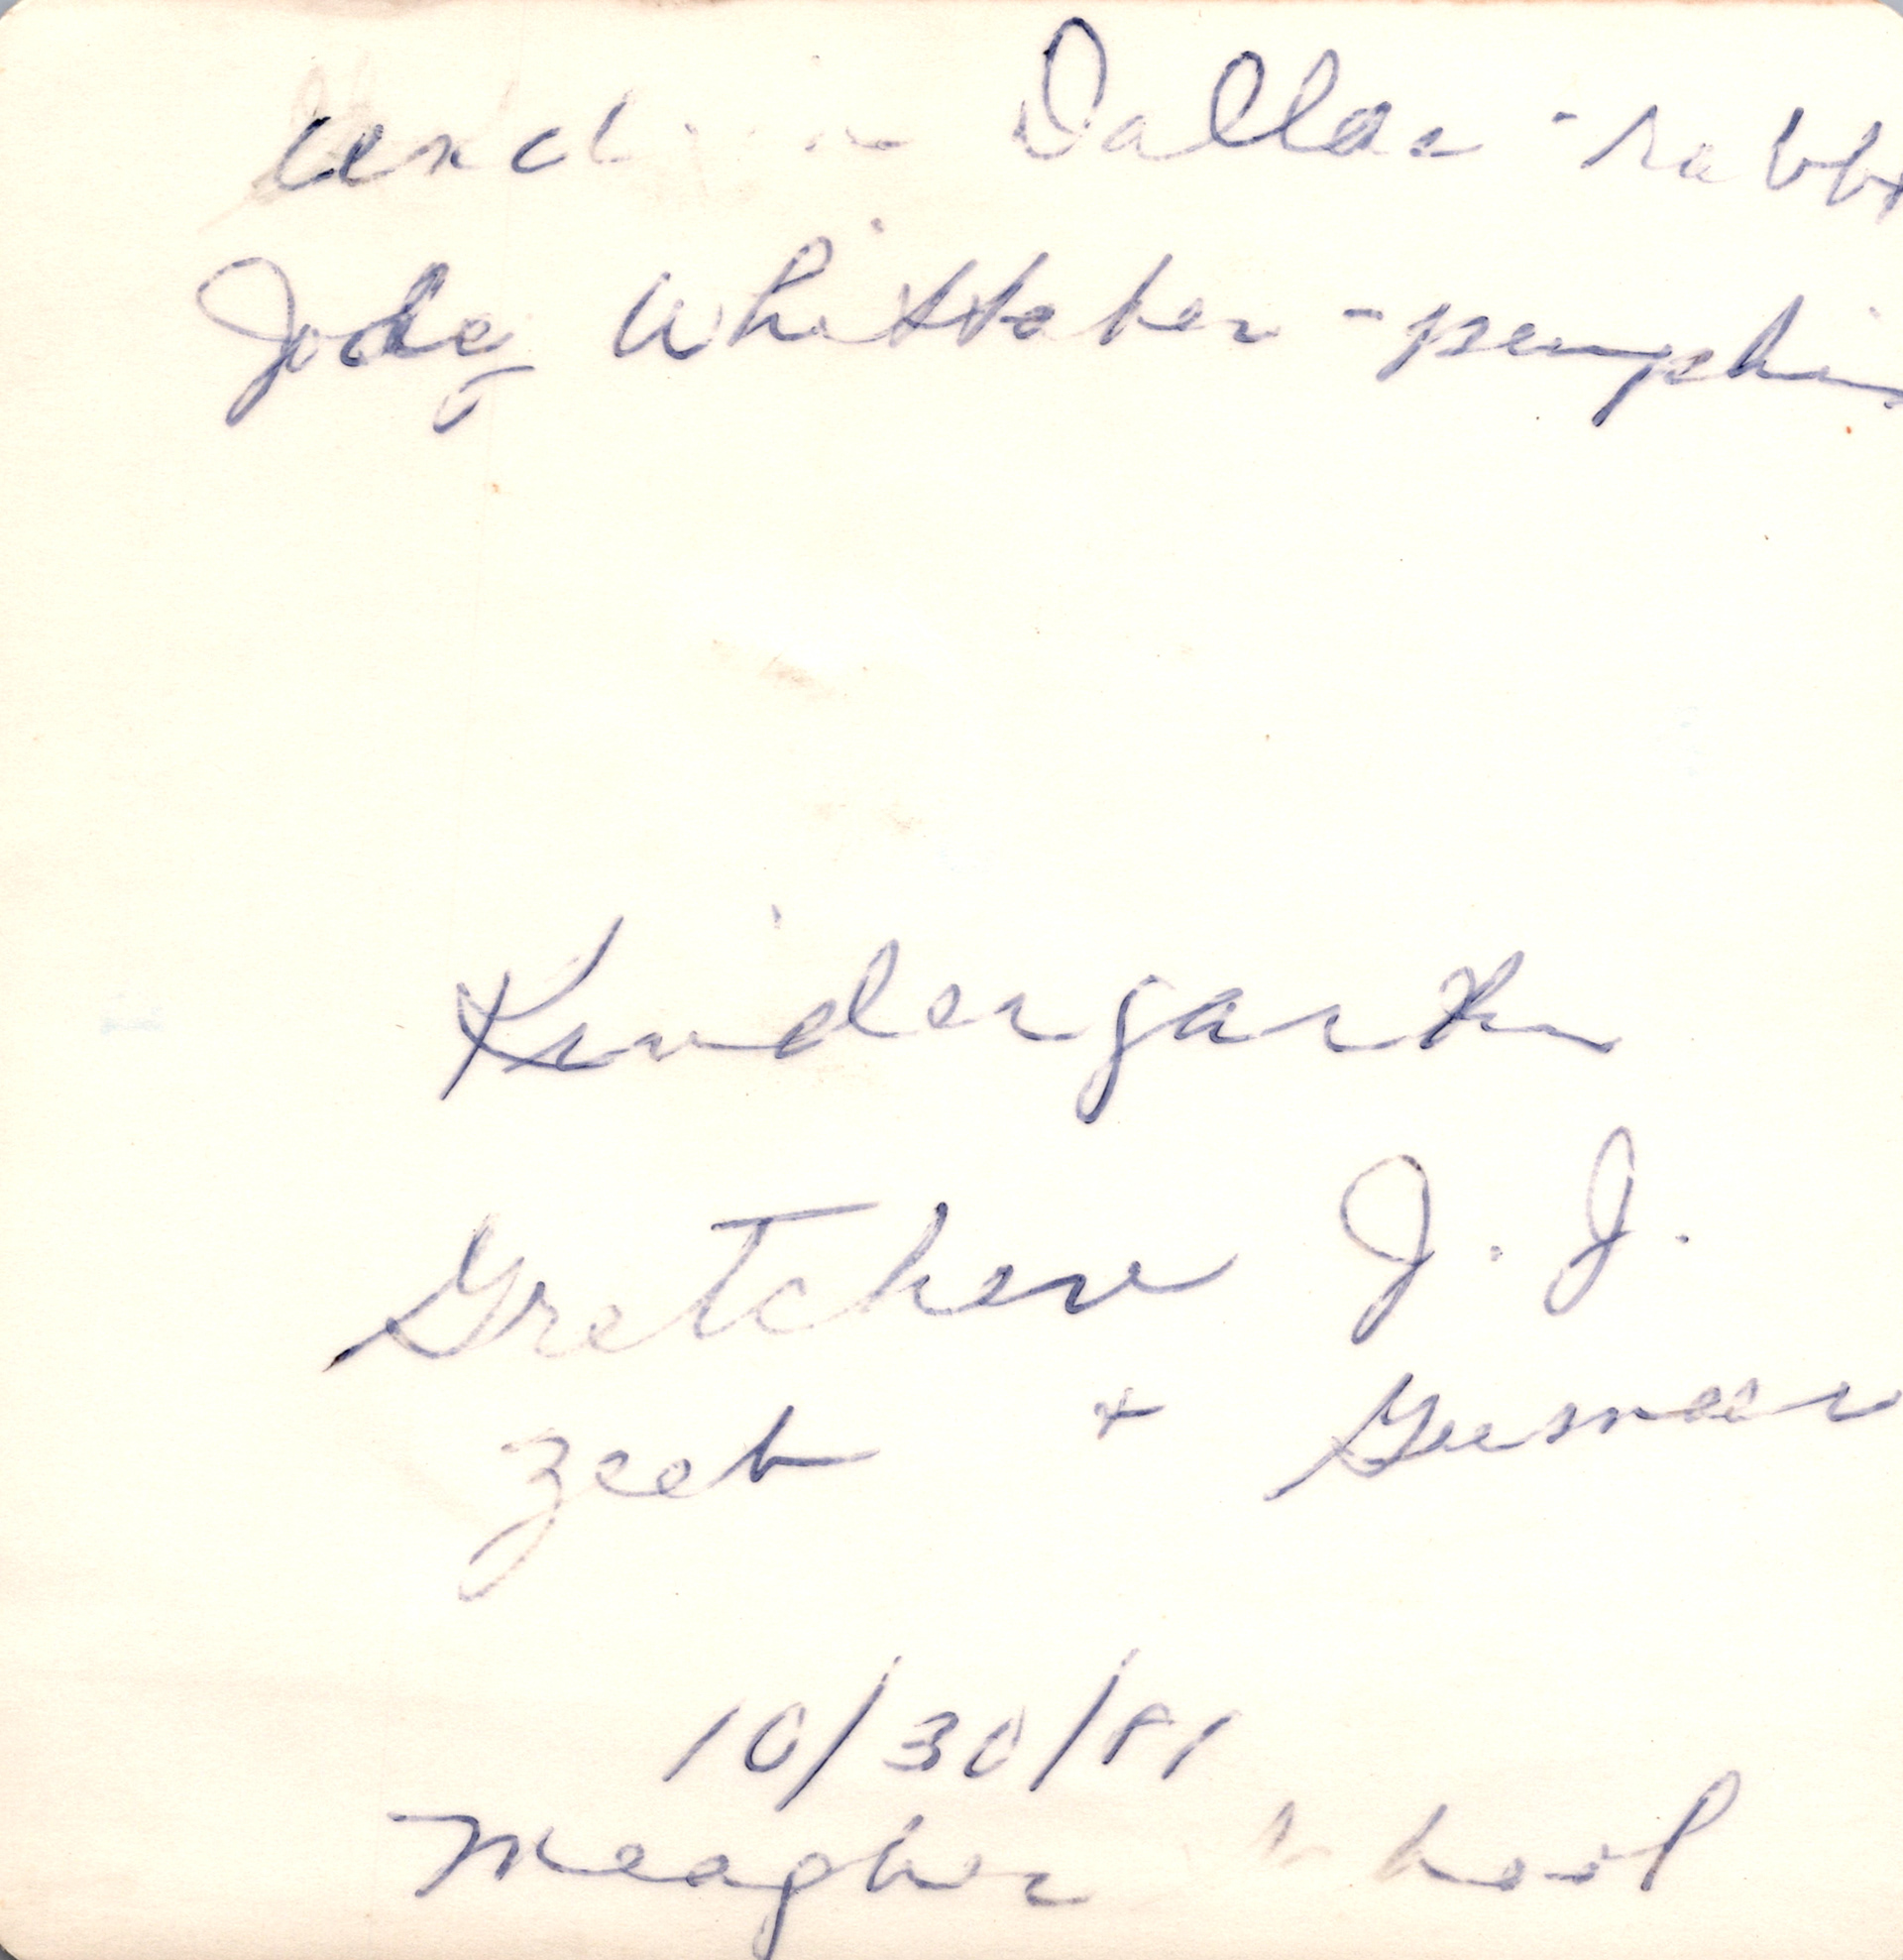 Dallas - rabbi
Jody Whittaker - pumpkin
Kindergarten
Gretchen J. J.
Zeeb +
10/30/81
Meagher School